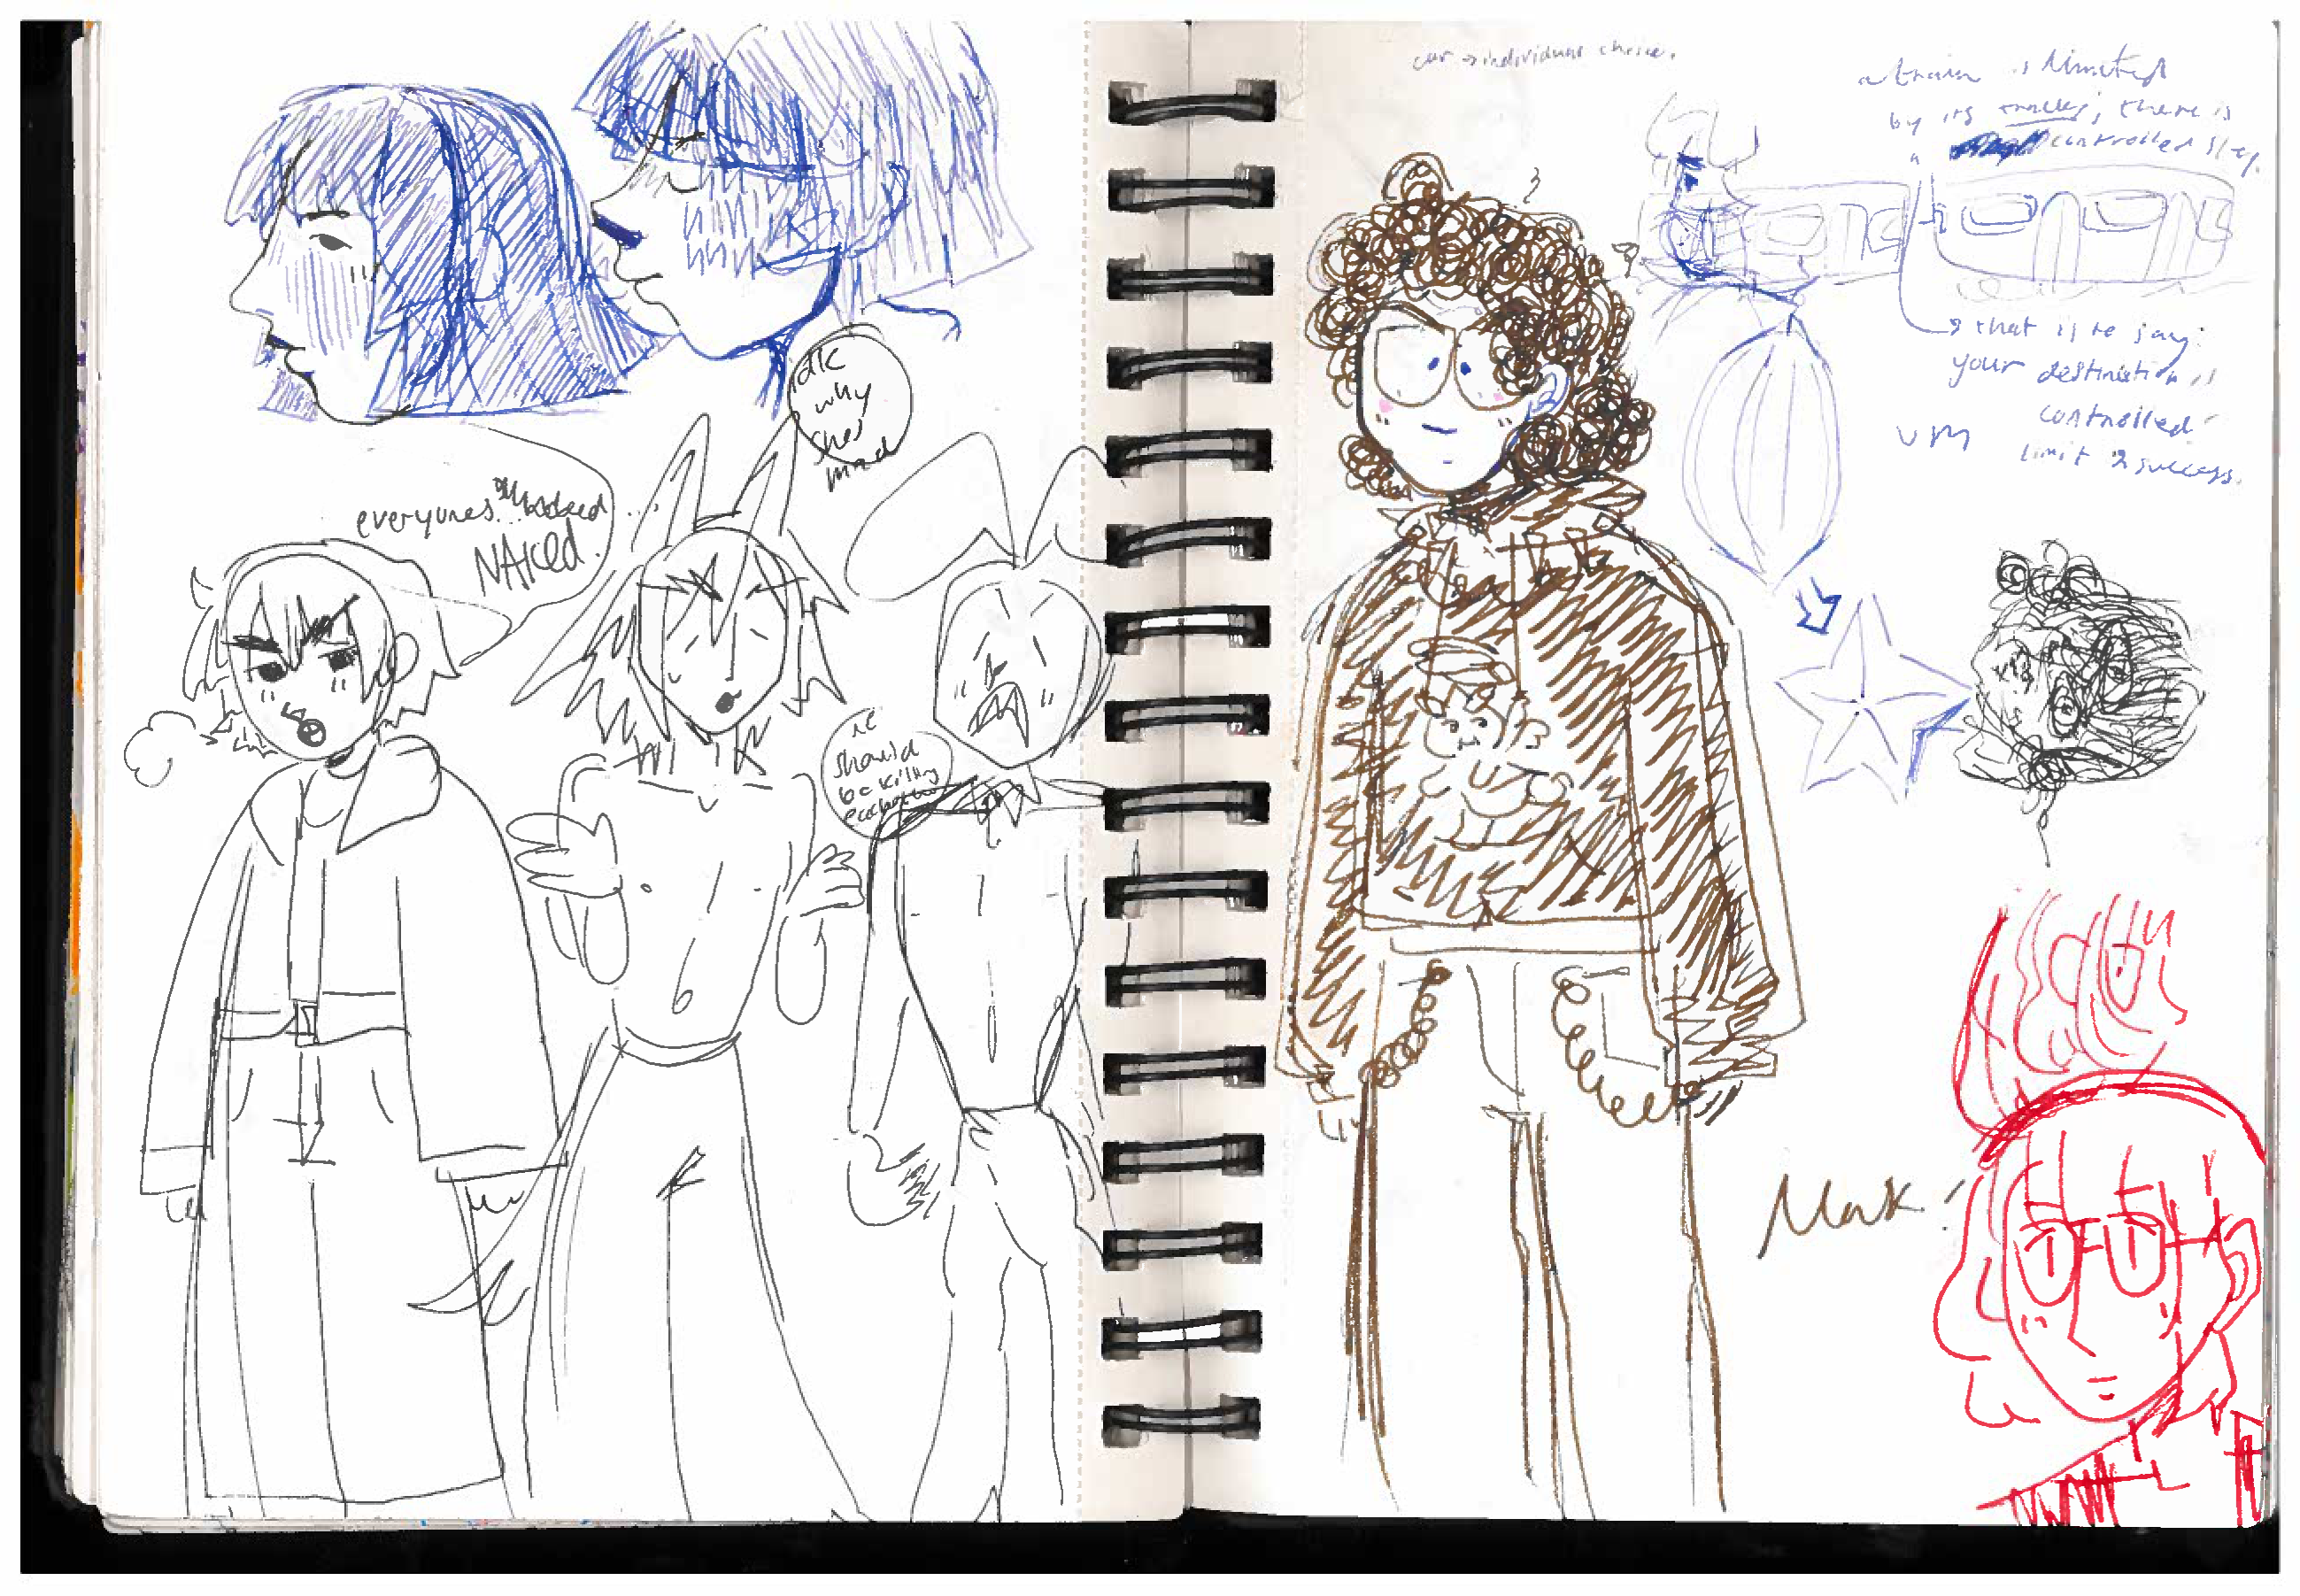 idk
why
shes
mad
everyones...
NAKED.
we
should
be killing
car → individual choice.
a train is limited
by its tracks; there is
a controlled step.
→ that is to say:
your destination is
controlled.
um
limit → success.
Mark!